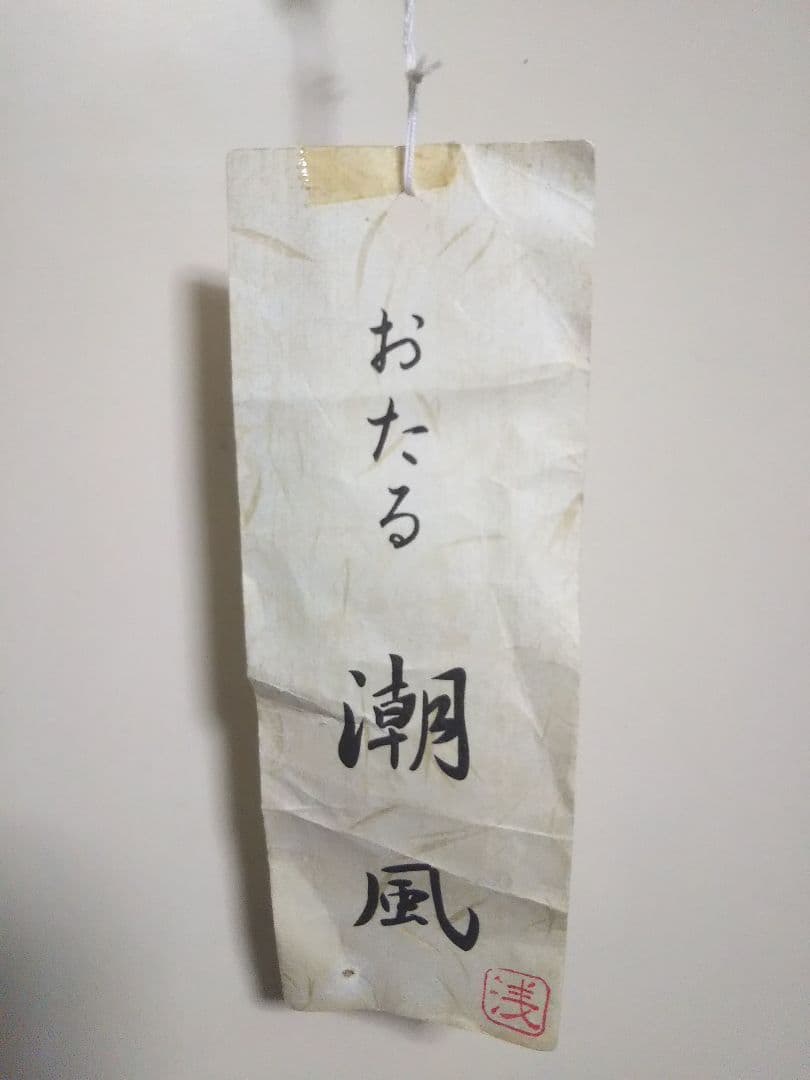 おたる 潮風
浅